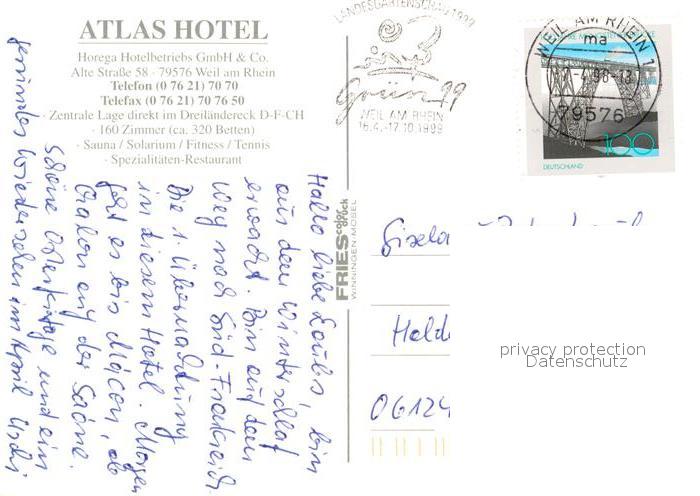 ATLAS HOTEL
Horega Hotelbetriebs GmbH & Co.
Alte Straße 58 · 79576 Weil am Rhein
Telefon (0 76 21) 70 70
Telefax (0 76 21) 70 76 50
· Zentrale Lage direkt im Dreiländereck D-F-CH
· 160 Zimmer (ca. 320 Betten)
· Sauna / Solarium / Fitness / Tennis
· Spezialitäten-Restaurant
LANDESGARTENSCHAU 1999
Grün 99
WEIL AM RHEIN
16.4.-17.10.1999
WEIL AM RHEIN 1
ma
79576
100
DEUTSCHLAND
Hallo liebe bin
aus dem Winterschlaf
erwacht. Bin auf dem
Weg nach Süd-Frankreich
Die 1. Übernachtung
in diesem Hotel. Morgen
geht es bis Mâcon, ob
Chalon auf der Saône.
Schöne Ostertage und ein
Wiedersehen im April Uschi
FRIES color druck
WINNINGEN-MOSEL
Gisela
06124
privacy protection
Datenschutz